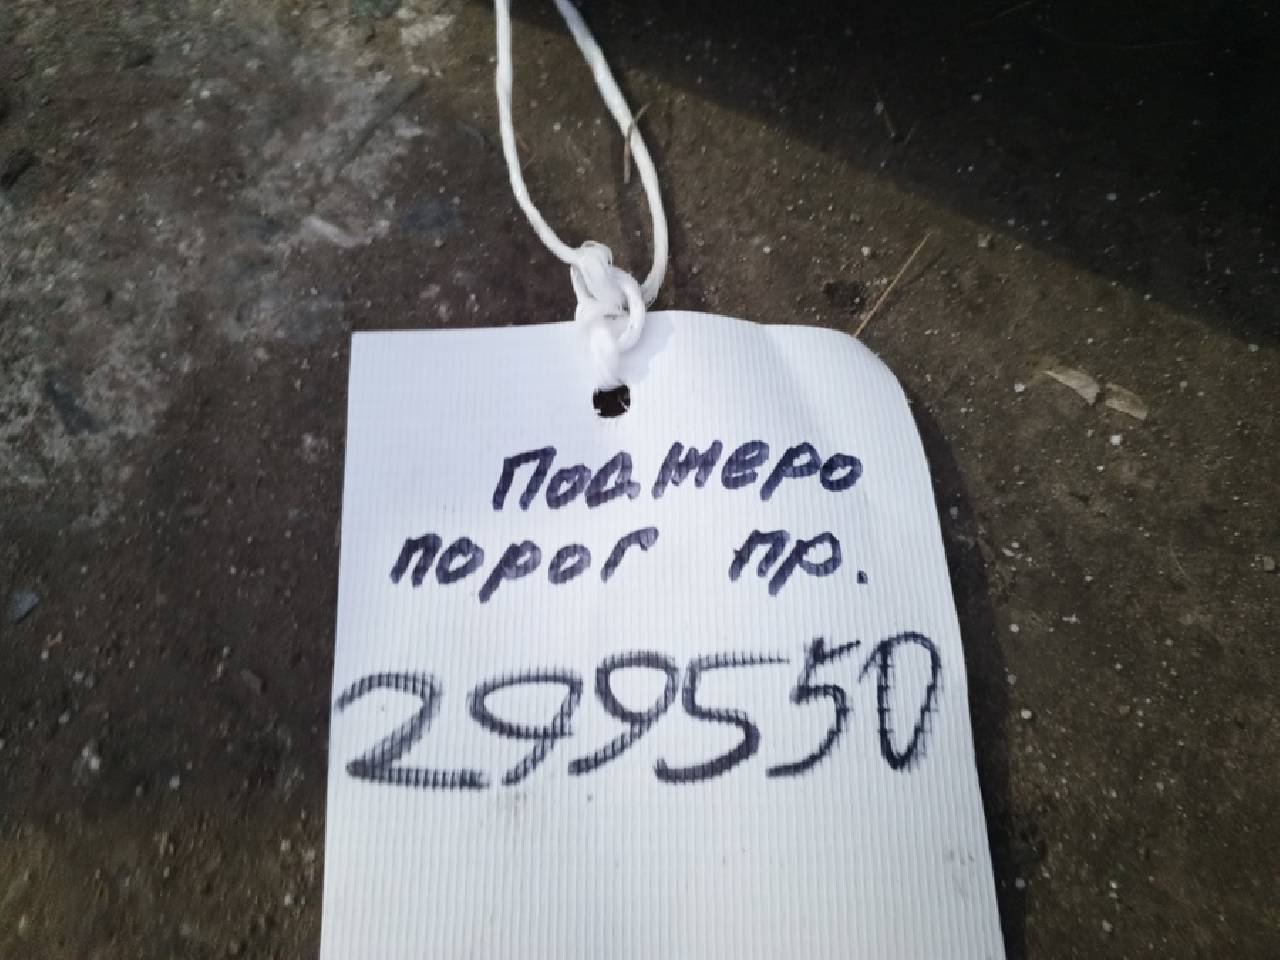 Поджеро
порог пр.
299550